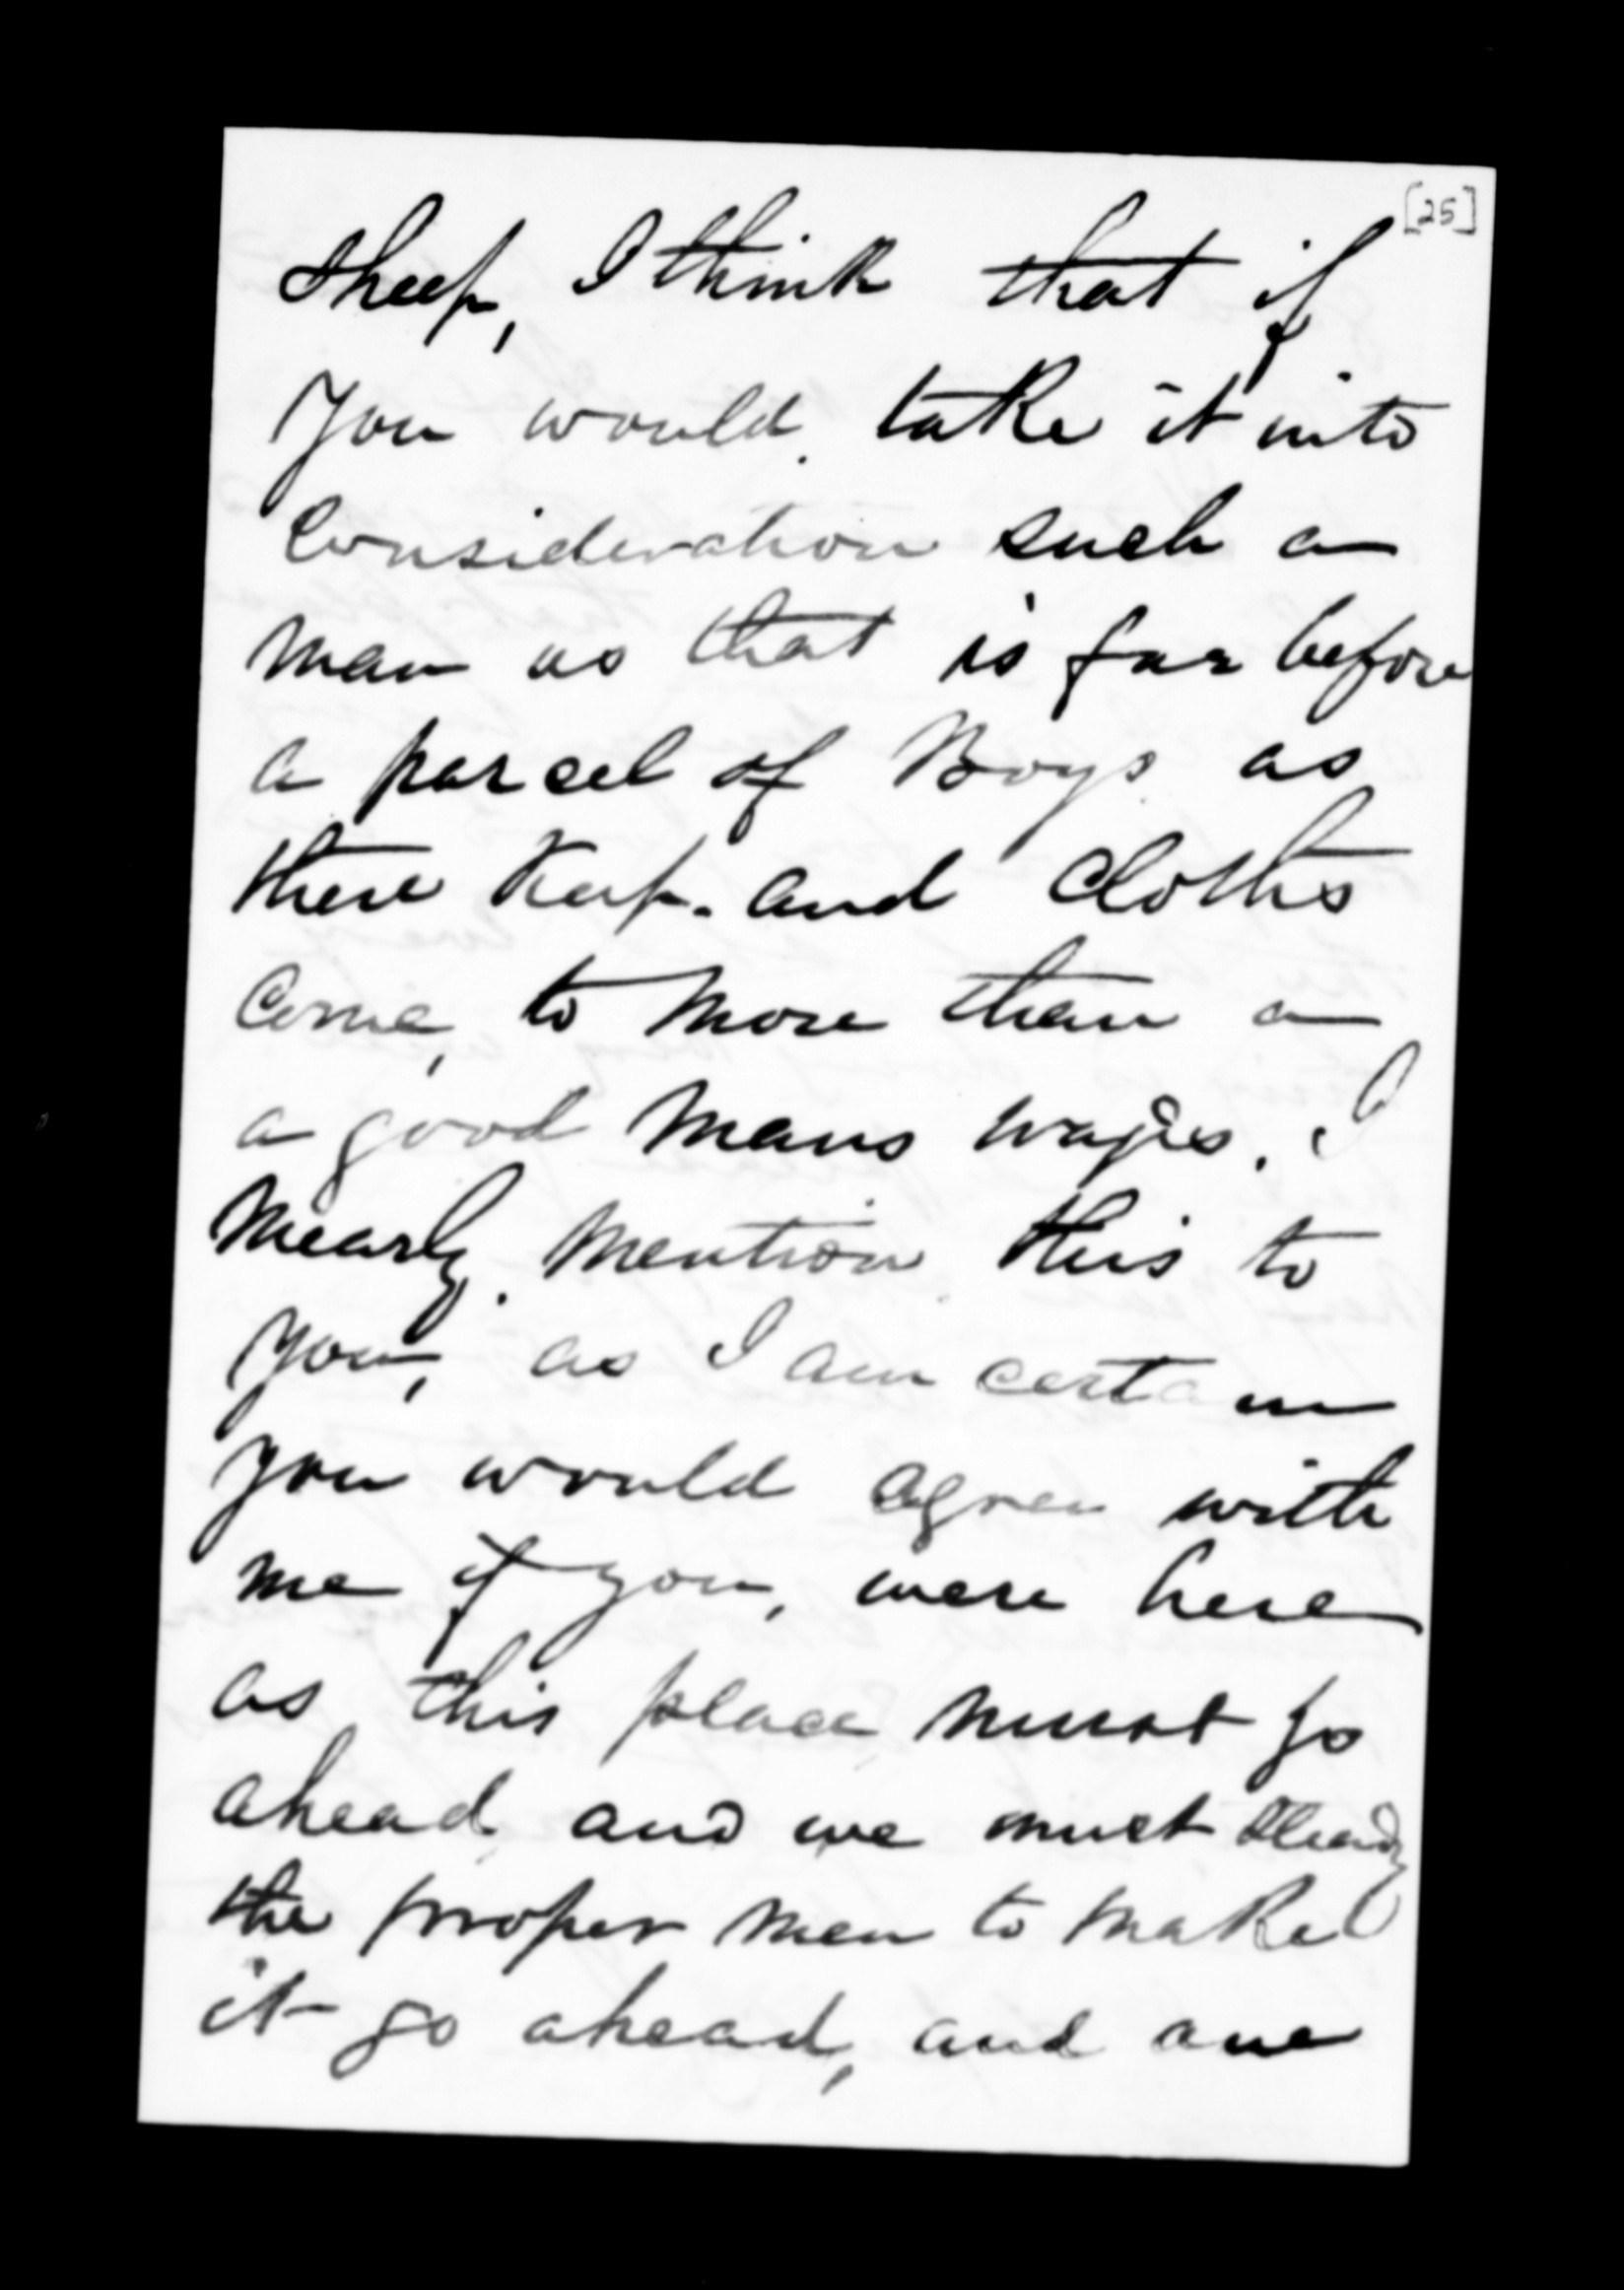 [25]
sheep, I think that if
you would take it into
Consideration such a
man as that is far before
a parcel of Boys as
there Keep. and Cloths
Come, to more than a
a good mans wages. I
Mearly. Mention this to
you, as I am certain
you would agree with
me if you, were here
as this place must go
ahead and we must
the proper men to make
it go ahead, and